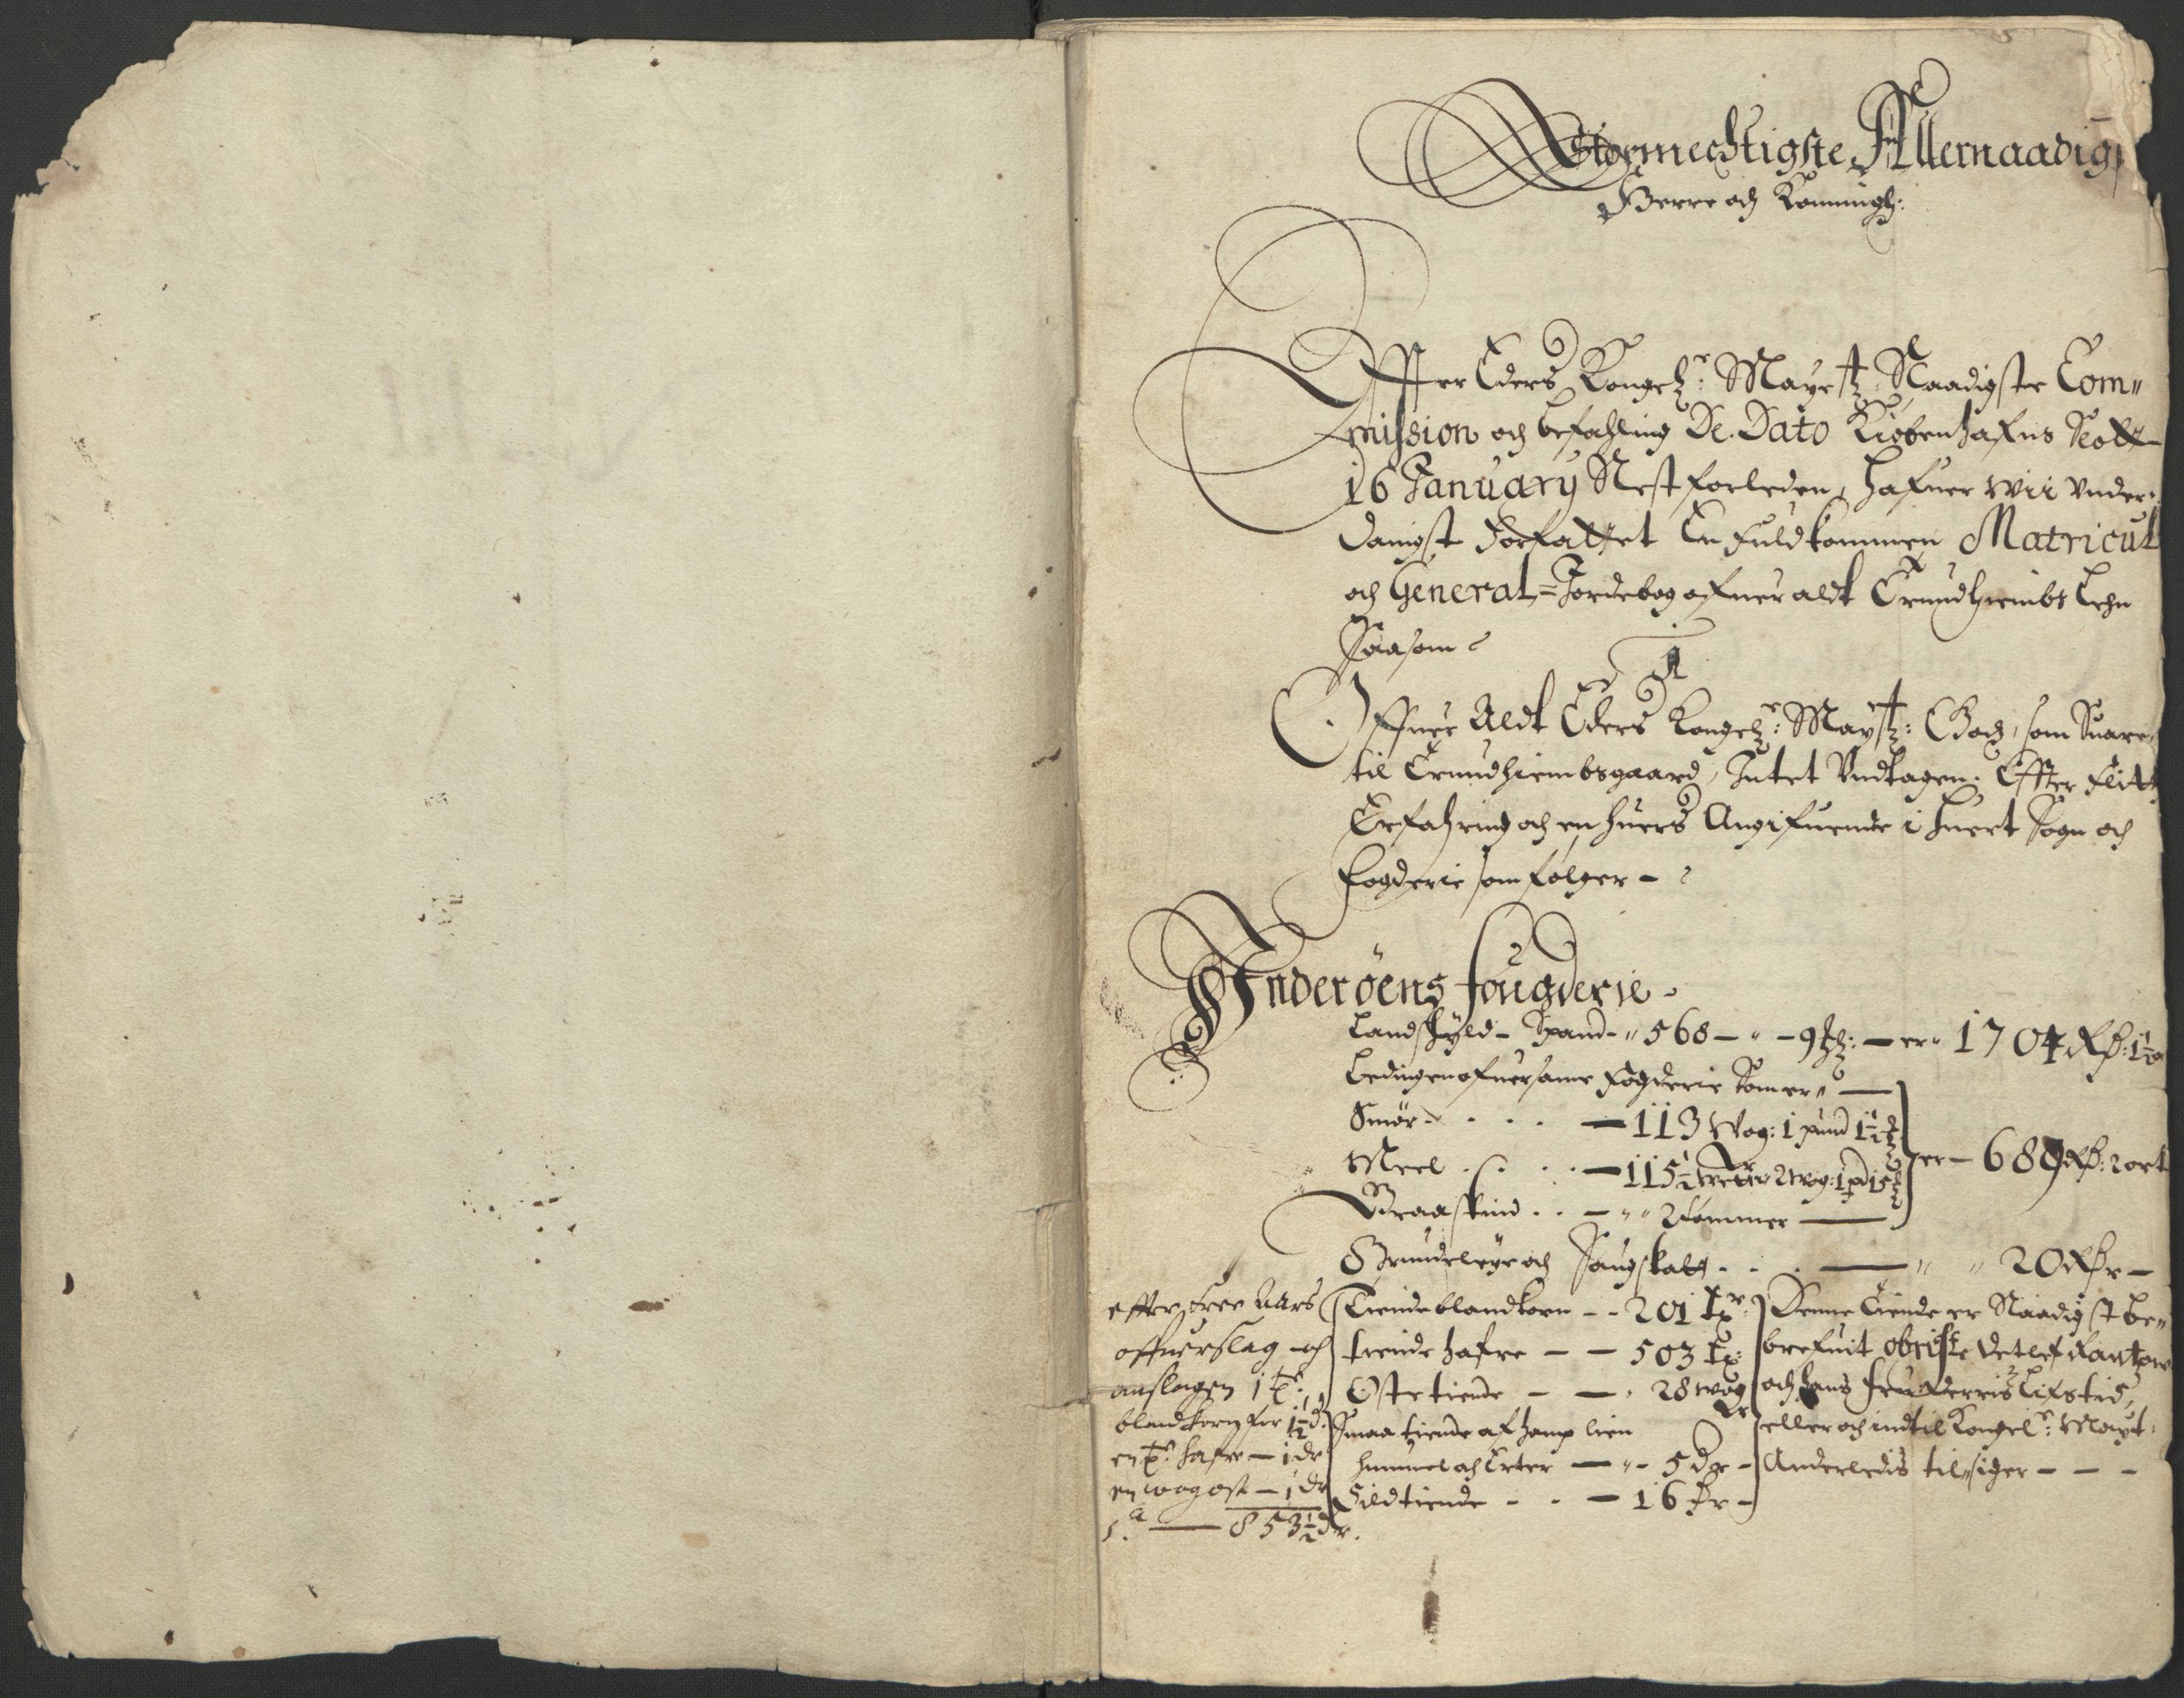 Stormechtigste Allernaadigs
Herre och Konningh:
Effter Eders Kongel: Mayestz: Naadigste Com"
mission och befahling De. Dato Kiøbenhafns Slott
16 January Nestforleden, hafuer wii vnder"
danigst Forfattet En Fuldkommen Matricul
och General=Jordebog ofuer aldt Trundhiembs Lehn
Saasom
1
Offuer Aldt Eders Kongel: Maystz: Godz, som Suarer
til Trundhiembsgaard, Intet Vndtagen. Effter Flittig
Erfahring och en huers Angifuende i huert Sogn och
Fogderie som følger –
Inderøens fougderie.
Landskyld – Spand – " 568 – " – 9 – er " 1704 Rß: 1½
Ledingen ofuer same Fogderie komer " —
Smør – . . . — 113 Wog: 1 pund 1½
Meel . . . . — 115½ 2 wog: 1 pd 15
Graaskind . . – " " 2 tømmer —
er – 689 Rß: 2 ort
Grundeleye och Saugskatt . . . — " " 20 Rßr –
effter tree Aars
offuerslag och
anslagen 1 Tr:
blandkorn for 1½ d.
en Tr: hafre – 1 dr
en wog ost – 1 dr
S.a — 853½ dr.
Tiende blandkorn – – 201 Tr:
tiende hafre – – 503 Tr:
Oste tiende – – . 28 wog
Smaa tiende af hamp lien
hummel och Erter — " – 5 dr –
Sildtiende – . – 16 dr –
Denne Tiende er Naadigst be"
brefuit obriste Detlef Rantzow
och hans Frue Deris Lifstid,
eller och indtil Kongel: Mayt:
Anderledis tilsiger – – –